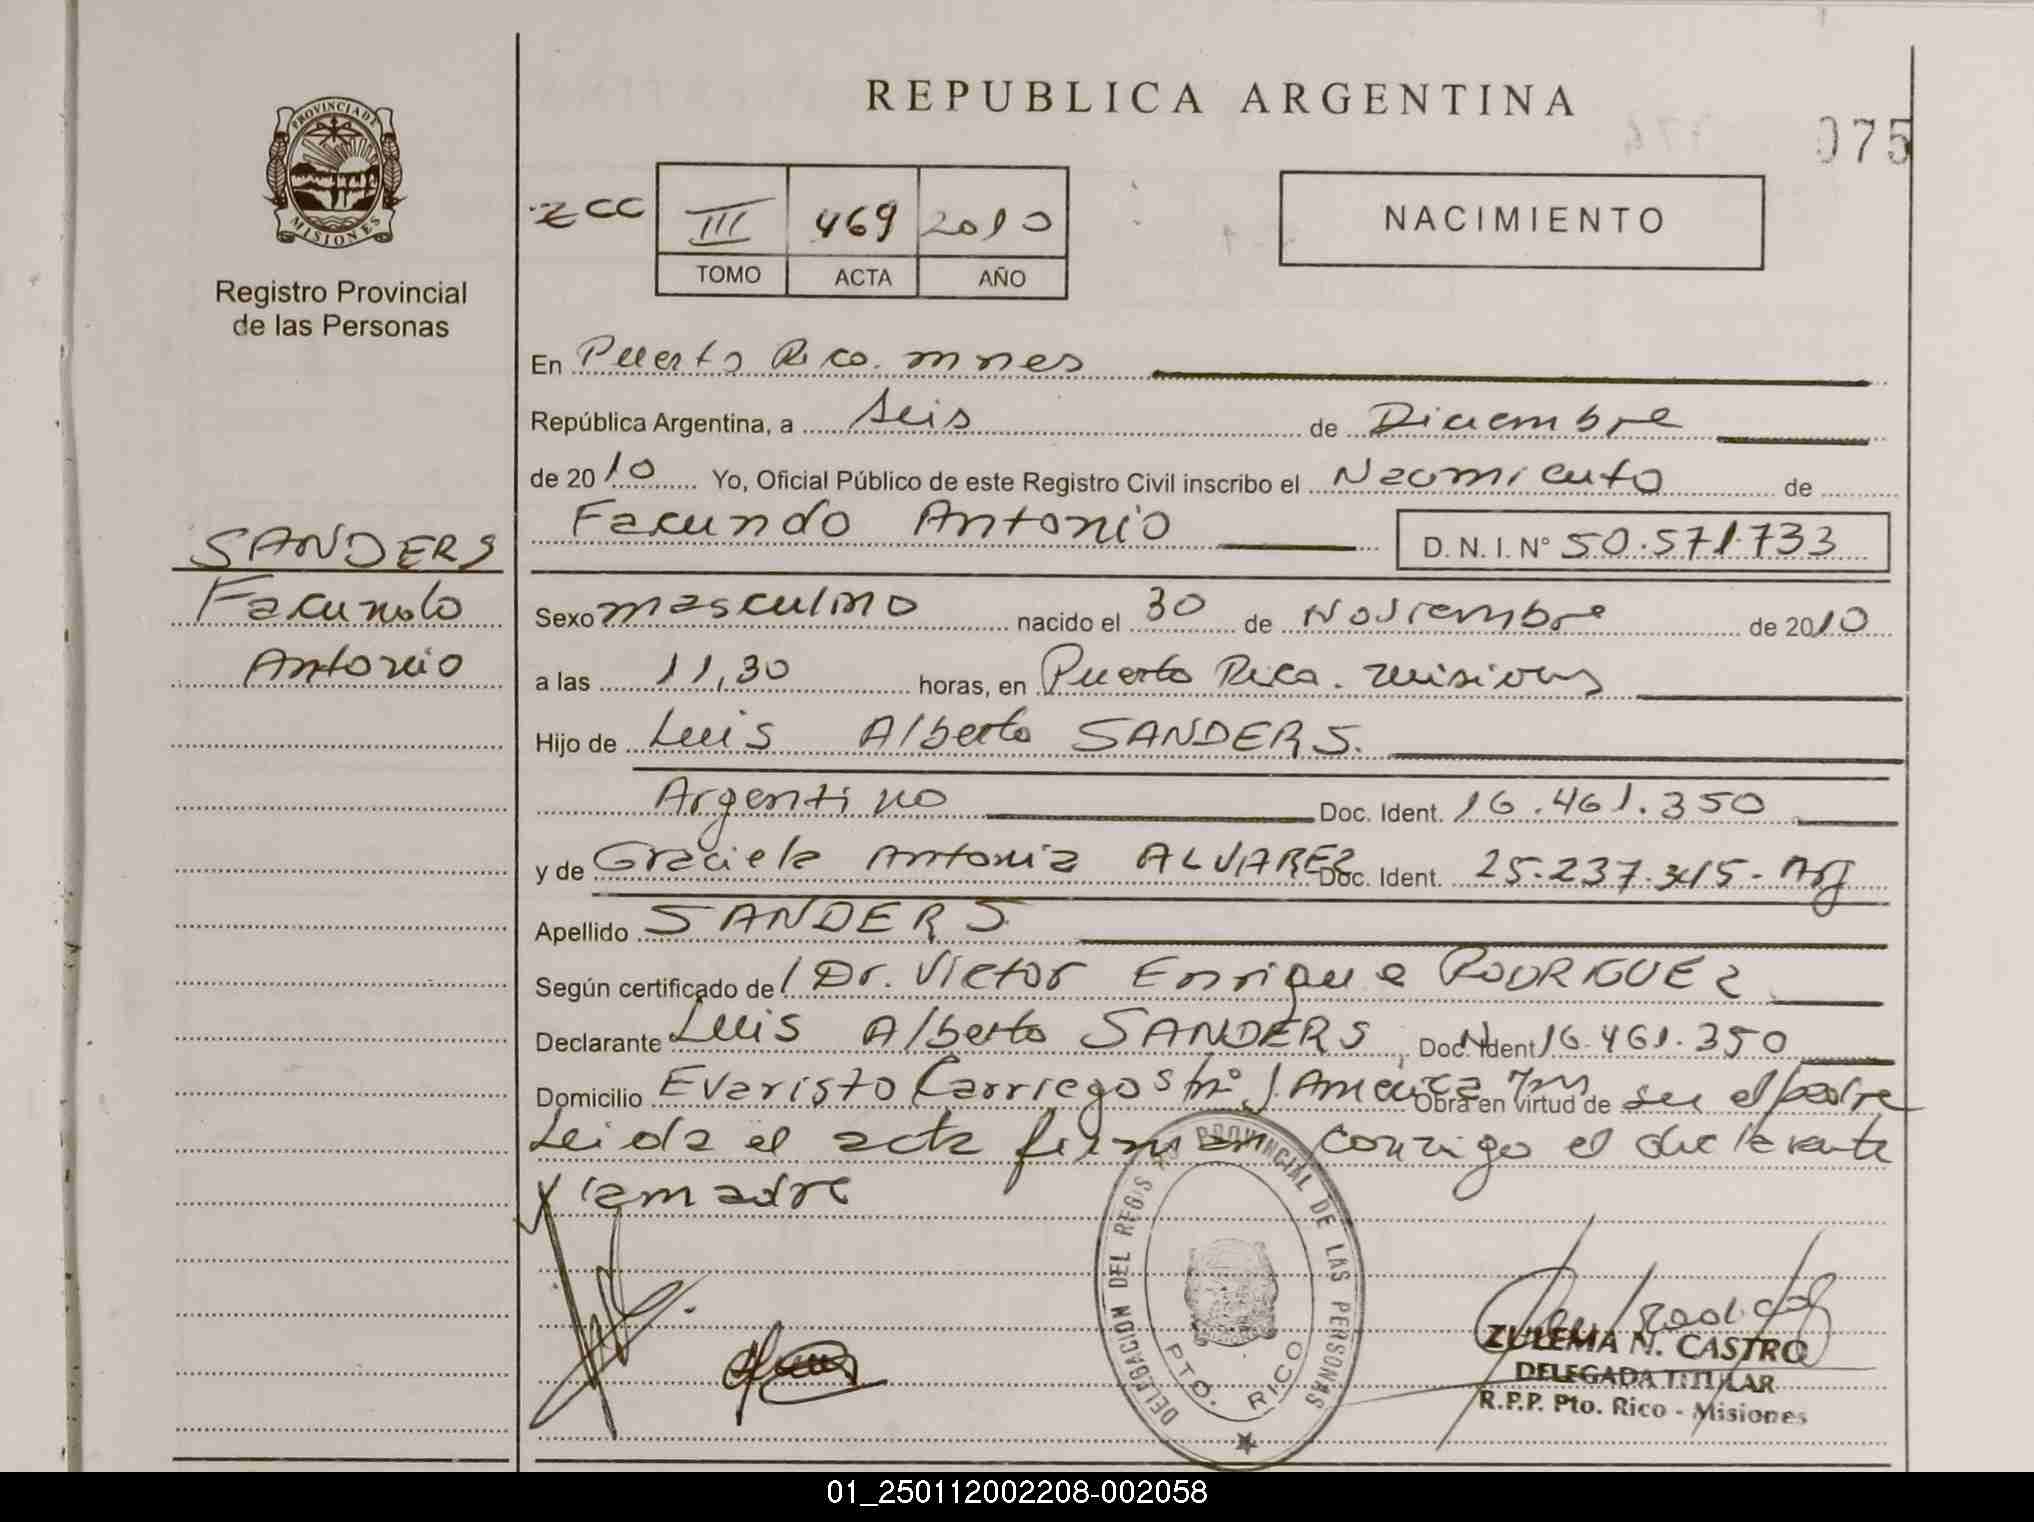 REPUBLICA ARGENTINA
075
PROVINCIA DE
MISIONES
Registro Provincial
de las Personas
III 469 2010
TOMO ACTA AÑO
NACIMIENTO
En Puerto Rico. mnes
República Argentina, a seis de Diciembre
de 2010 Yo, Oficial Público de este Registro Civil inscribo el Nacimiento de
Facundo Antonio D. N. I. N° 50.571.733
SANDERS
Facundo
Antonio
Sexo masculino nacido el 30 de Noviembre de 2010
a las 11,30 horas, en Puerto Rico. Misiones
Hijo de Luis Alberto SANDERS.
Argentino Doc. Ident. 16.461.350
y de Graciela Antonia ALVAREZ Doc. Ident. 25.237.415- Arg
Apellido SANDERS
Según certificado del Dr. Victor Enrique RODRIGUEZ
Declarante Luis Alberto SANDERS, Doc. Ident 16.461.350
Domicilio Evaristo Carriego s/n°, J. América Obra en virtud de ser el padre
Leida el acta firman conmigo el declarante
y la madre
DELEGACION DEL REGISTRO PROVINCIAL DE LAS PERSONAS
PTO. RICO
ZULEMA N. CASTRO
DELEGADA TITULAR
R.P.P. Pto. Rico - Misiones
01_250112002208-002058